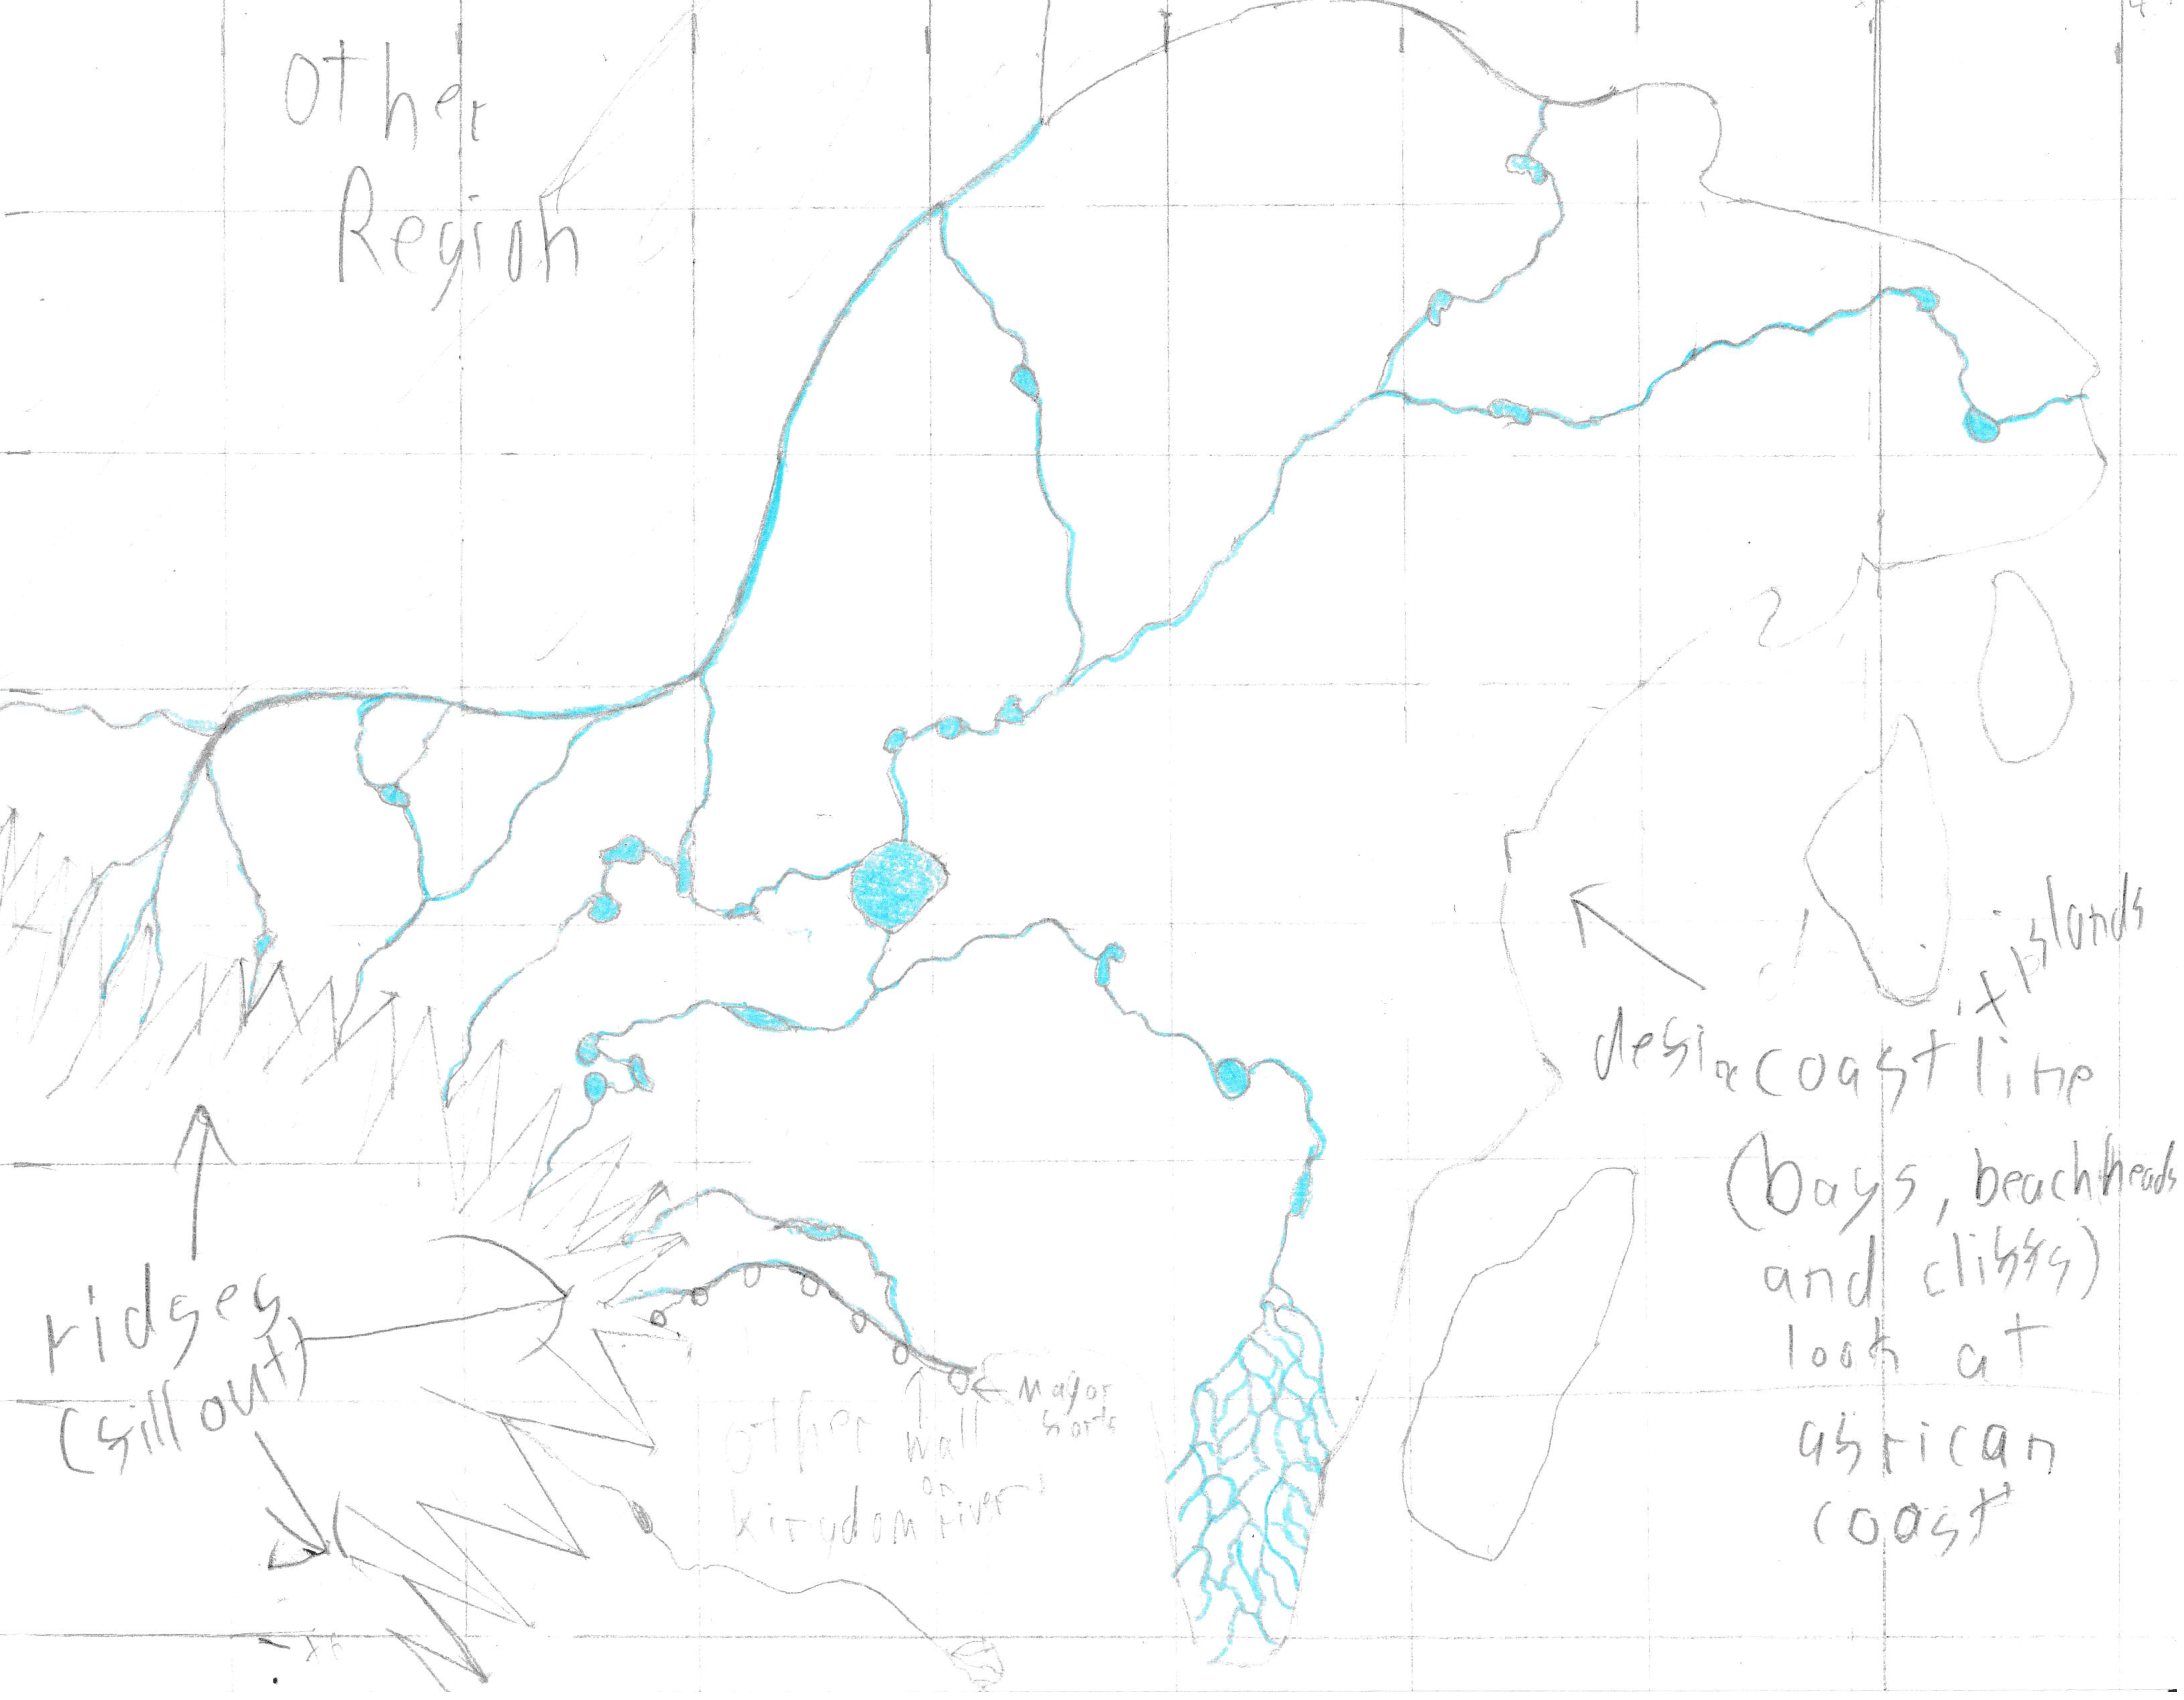 Other
Region
x islands
desine coast line
(bays, beachheads
and cliffs)
look at
african
coast
ridges
(fill out)
Mayor
forts
other wall
on
kingdom river